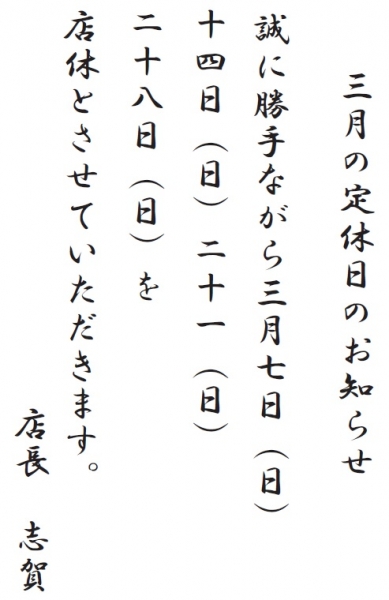 三月の定休日のお知らせ
誠に勝手ながら三月七日（日）
十四日（日）二十一（日）
二十八日（日）を
店休とさせていただきます。
店長　志賀